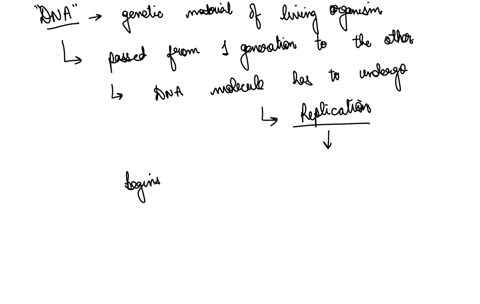 "DNA" → genetic material of living organism
↳ passed from 1 generation to the other
↳ DNA molecule has to undergo
↳ Replication
↓
begins